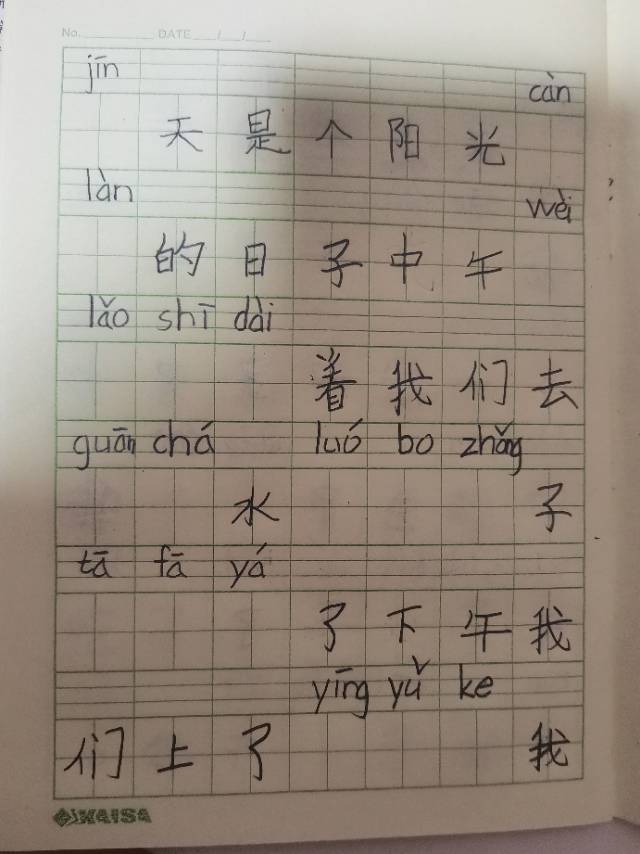 No. DATE / /
jīn càn
天是个阳光
làn wèi
的日子中午
lǎo shī dài
着我们去
guān chá luó bo zhǎng
水子
tā fā yá
了下午我
yīng yǔ ke
们上了我
KAISA